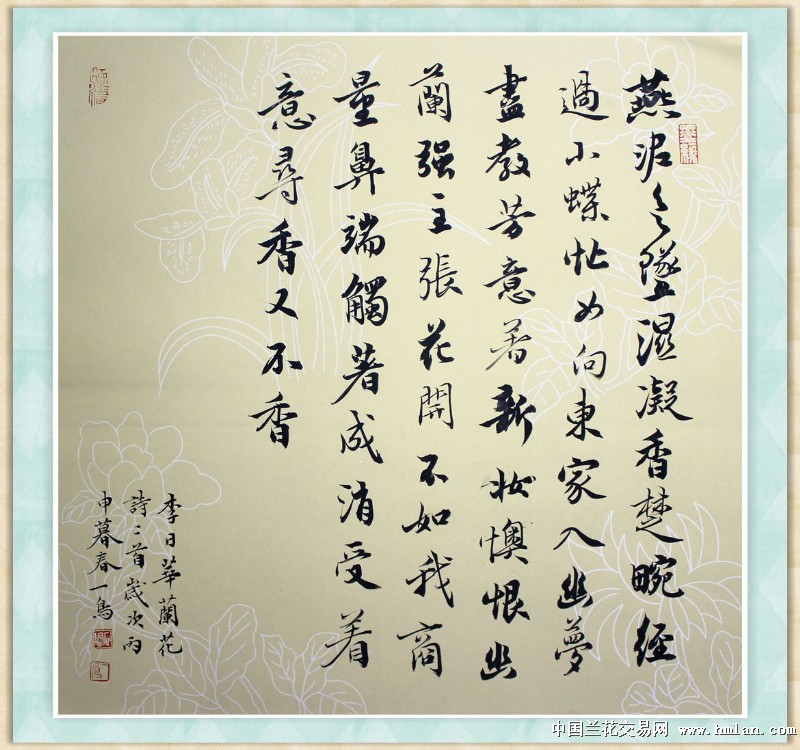 燕泥墜濕凝香楚畹經
過小蝶忙向東家入幽夢
盡教芳意著新妝懊恨幽
蘭强主張花開不如我商
量鼻端觸著成消受着
意尋香又不香
李日華蘭花
詩二首歲次丙
申暮春一鳥
中国兰花交易网 www.hmlan.com